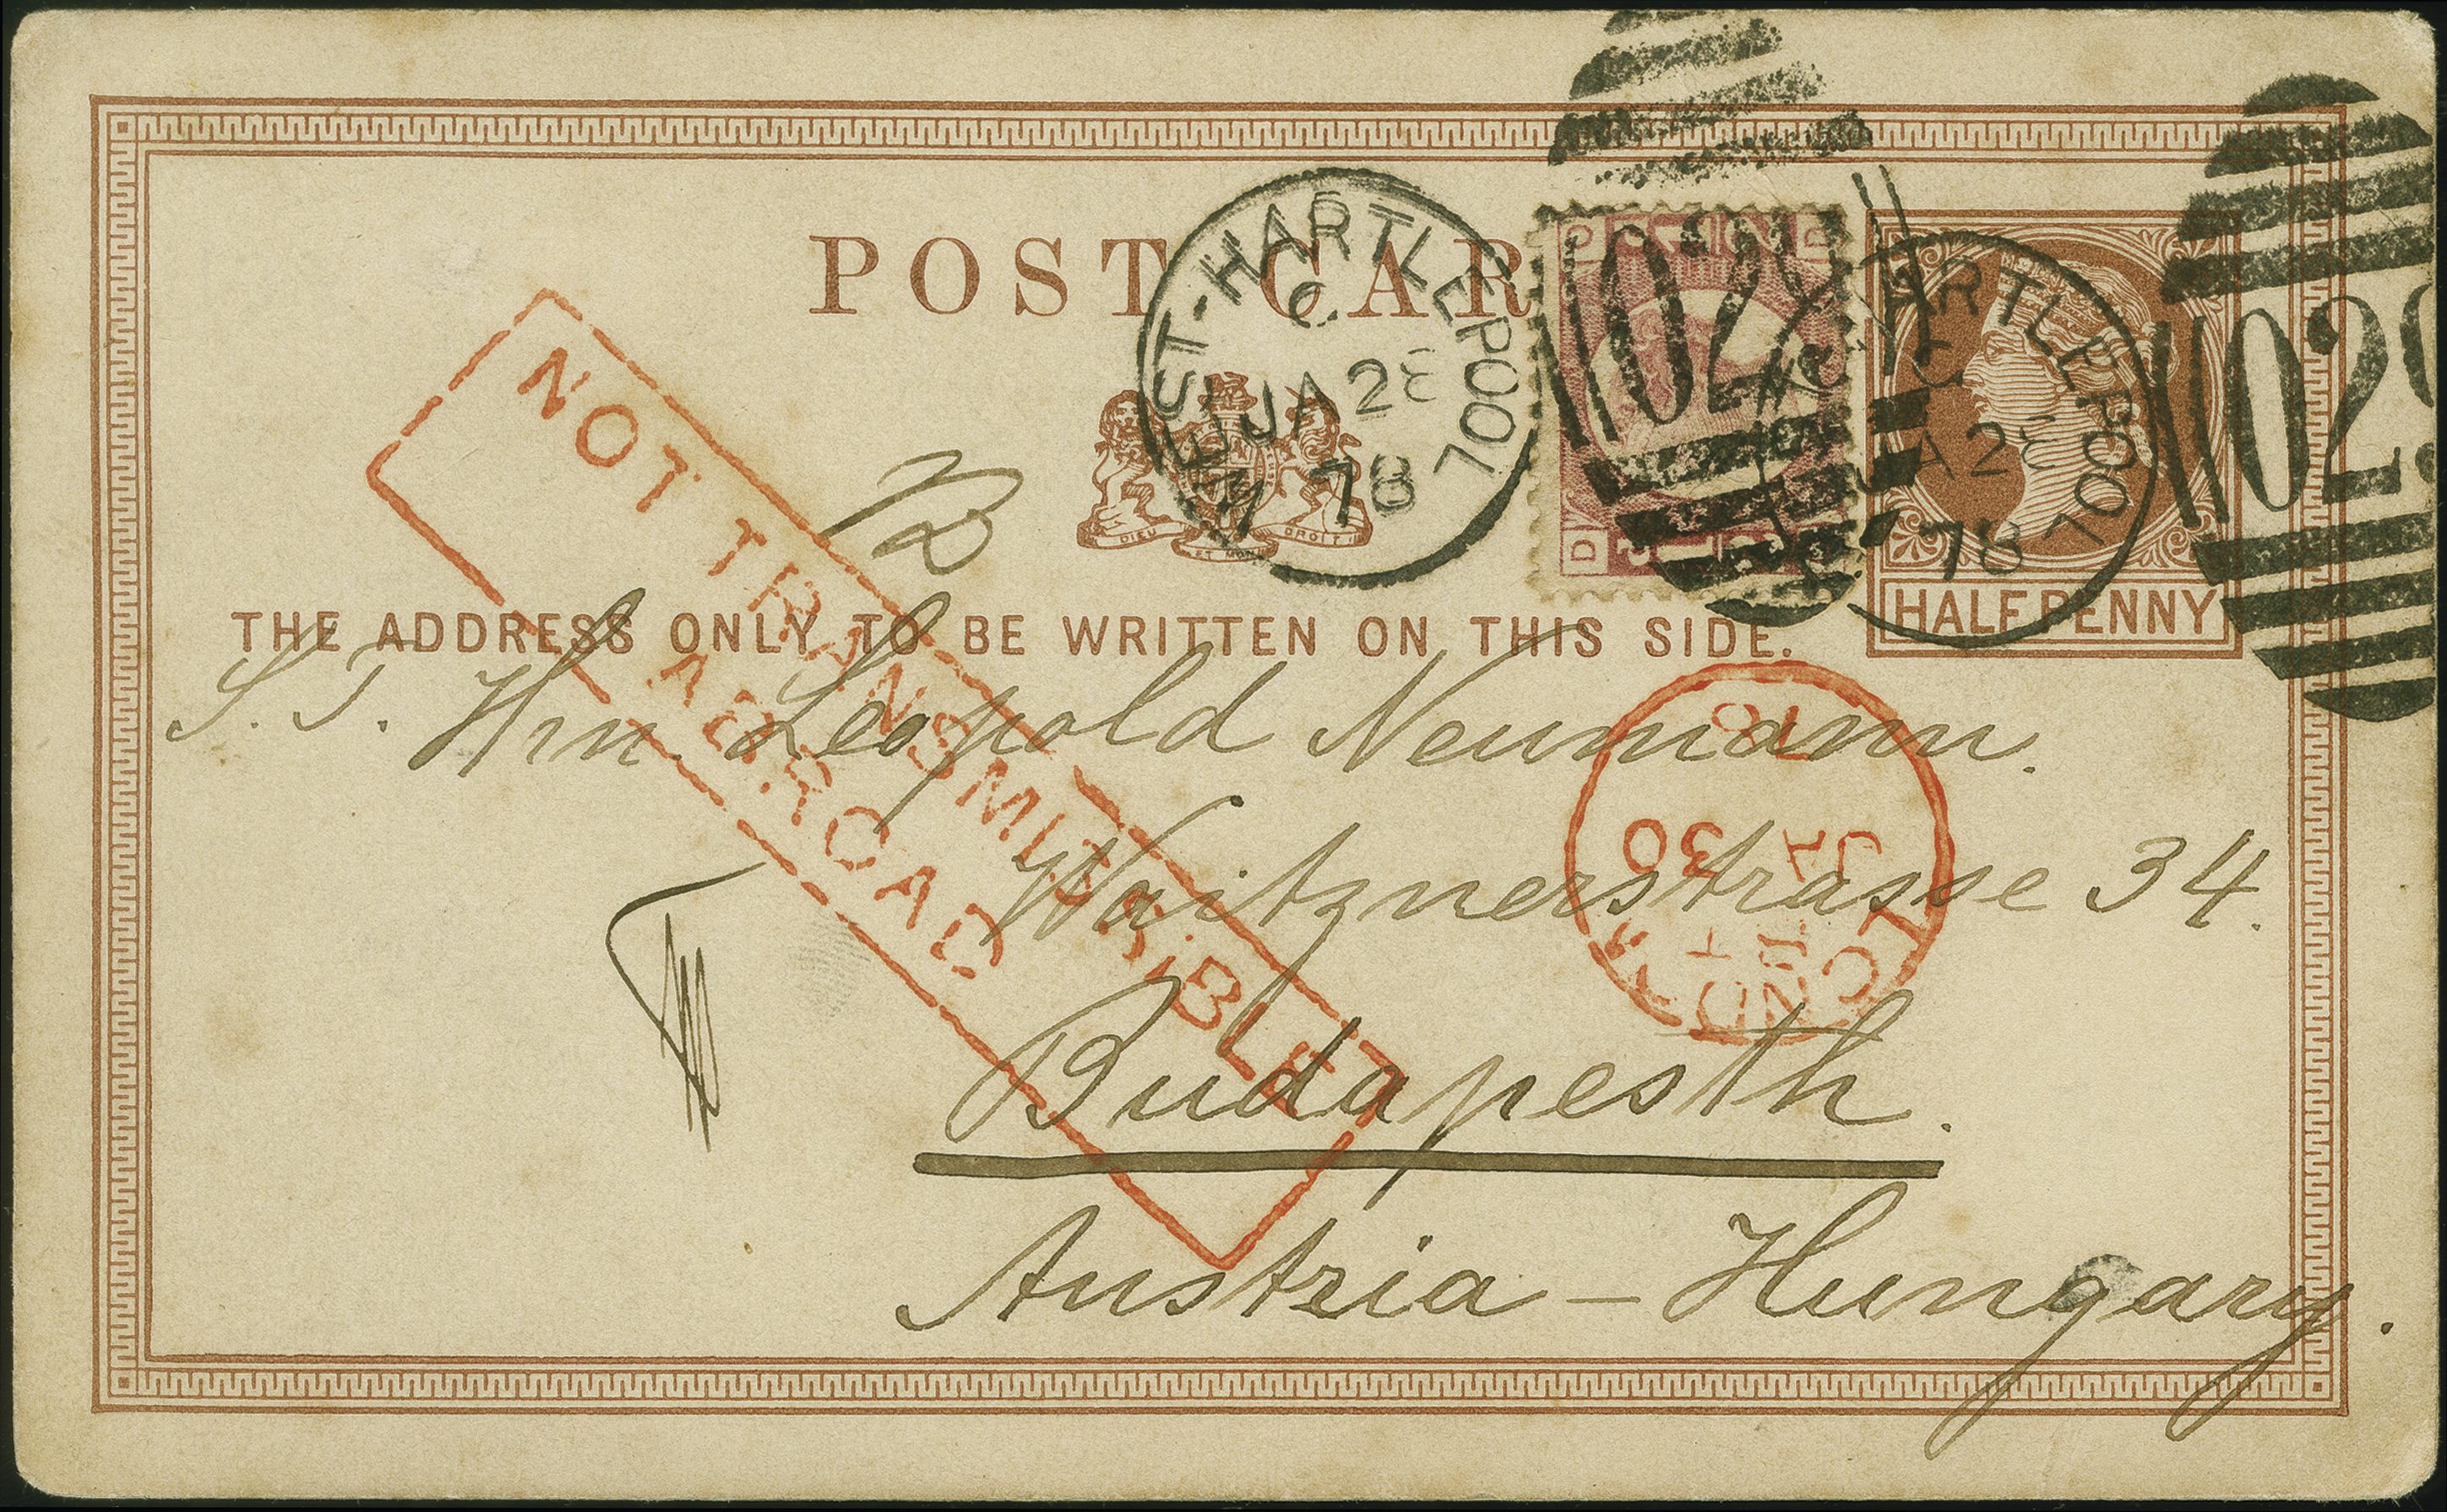 POST CAR
WEST-HARTLEPOOL
C
JA 28
78
029
HARTLEPOOL
C
JA 28
78
029
DIEU ET MON DROIT
HALFPENNY
THE ADDRESS ONLY TO BE WRITTEN ON THIS SIDE.
NOT TRANSMISSIBLE
ABROAD
S. T. Hrn. Leopold Neumann.
Waitznerstrasse 34.
Budapesth.
Austria – Hungary.
LONDON
JA 30
78